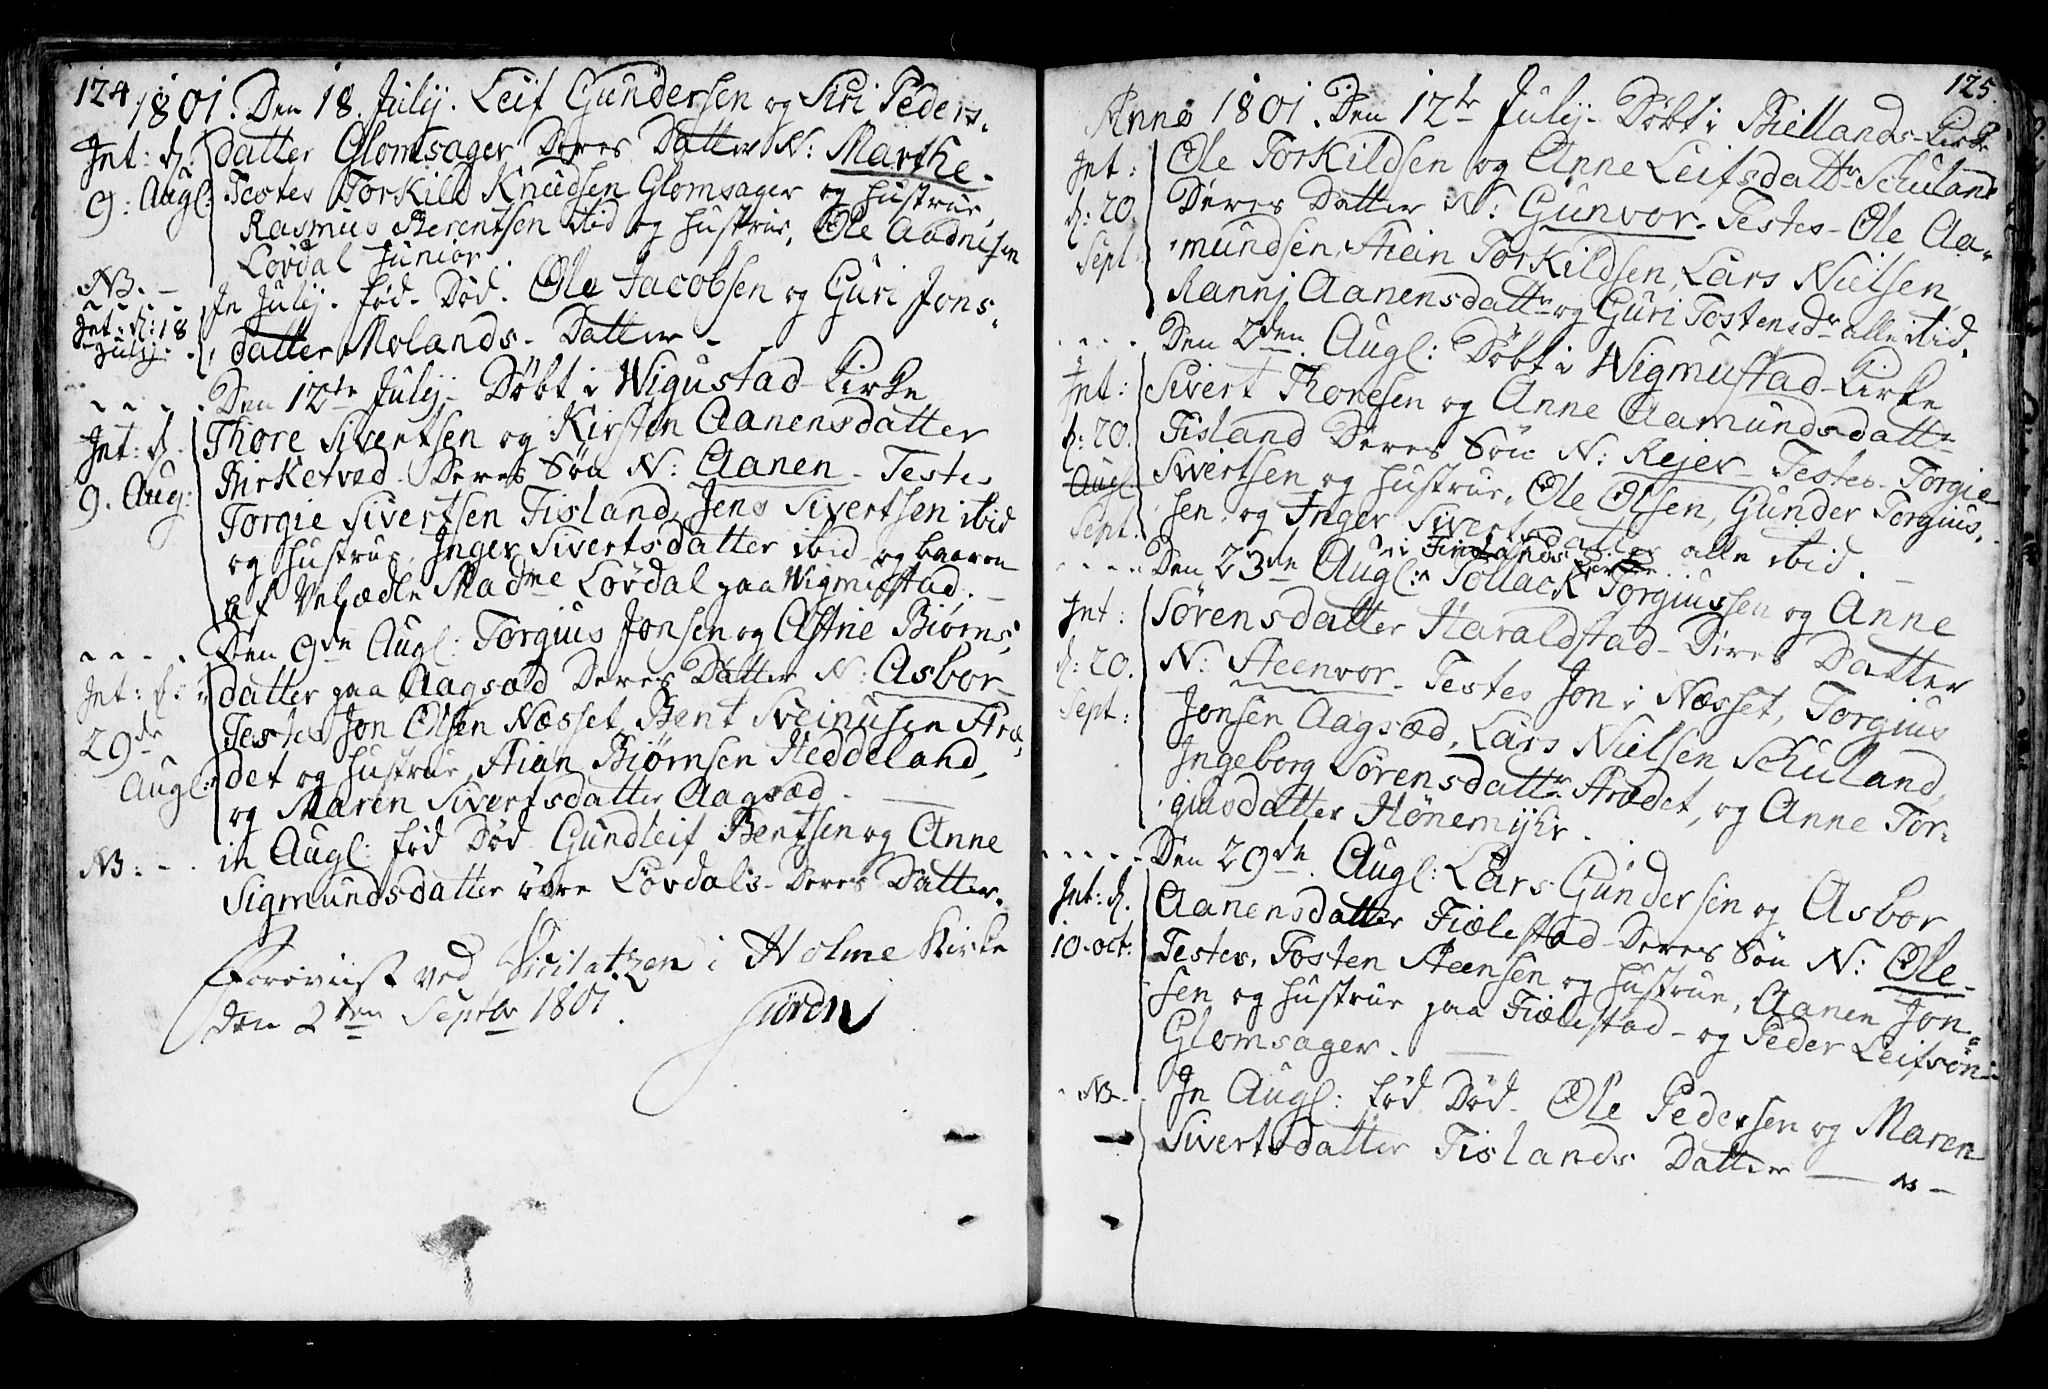 124
1801. Den 18. Julij. Leif Gundersen og Siri Peders.
Int: d. datter Glomsager Deres Datter N: Marthe.
9: Augl: Testes Torkild Knudsen Glomsager og Hustrue,
Rasmus Berentsen ibid og Hustrue, Ole Aadnesen
Lövdal Junior.
NB. In Julij. fød. Död. Ole Jacobsen og Guri Jons.
Int: d: 18 Julij. datter Molands. Datter.
Den 12te Julij. Döbt i Wigustad Kirke
Int: d. Thore Sivertsen og Kirsten Aanensdatter
9. Aug: Birketved. Deres Sön N: Aanen. Testes
Torgie Sivertsen Fisland, Jens Sivertsen ibid
og Hustrue, Inger Sivertsdatter ibid og baaren
af Velædle Madme Lövdal paa Wigmustad.
Den 9de Augl: Torgius Jonsen og Astrie Biörns,
Int: datter paa Aagsæd Deres Datter N: Asbor
29de Testes Jon Olsen Næsset, Bent Sveinusen Stræ,
Augl: det og Hustrue, Stian Biörnsen Heddeland,
og Maren Sivertsdatter Aagsæd.
NB: in Augl: fød Död Gundleif Bentsen og Anne
Sigmundsdatter övre Lövdals. Deres Datter.
Foreviist ved Visitatzen i Holme Kirke
den 2den Septbr 1801.
125.
Anno 1801. Den 12te Julij. Döbt i Biellands Kirke
Int: Ole Torkildsen og Anne Leifsdattr Schuland
d: 20. Deres Datter N: Gunvor. Testes. Ole Aa-
Sept mundsen, Stein Torkildsen, Lars Nielsen,
Ranni Aanensdattr og Guri Tostensdr alle ibid.
Den 2den Augl: Döbt i Wigmustad Kirke
Int: Sivert Thoresen og Anne Aamundsdattr
d: 20. Fisland Deres Sön N: Rejer. Testes. Torgie
Augl Sivertsen og Hustrue, Ole Olsen, Gunder Torgius.
Sept: sen, og Inger Sivertsdatter alle ibid.
Den 23de Augl: i Finlands Kirke Tollack Torgiussen og Anne
Int: Sörensdatter Haraldstad. Deres Datter
d: 20. N: Steenvor. Testes Jon i Næsset, Torgius
Sept: Jonsen Aagsæd, Lars Nielsen Schuland,
Ingeborg Sörensdattr Strædet, og Anne Tor-
giusdatter Hönemyhr.
Den 29de Augl: Lars Gundersen og Asbor
Int: d. Aanensdatter Fiælestad Deres Sön N: Ole.
10. oct: Testes, Tosten Steensen og Hustrue, Aanen Jon-
sen og Hustrue paa Fiælestad. og Peder Leifsön
Glomsager.
NB. In Augl: fød Död. Ole Pedersen og Maren
Sivertsdatter Fislands Datter